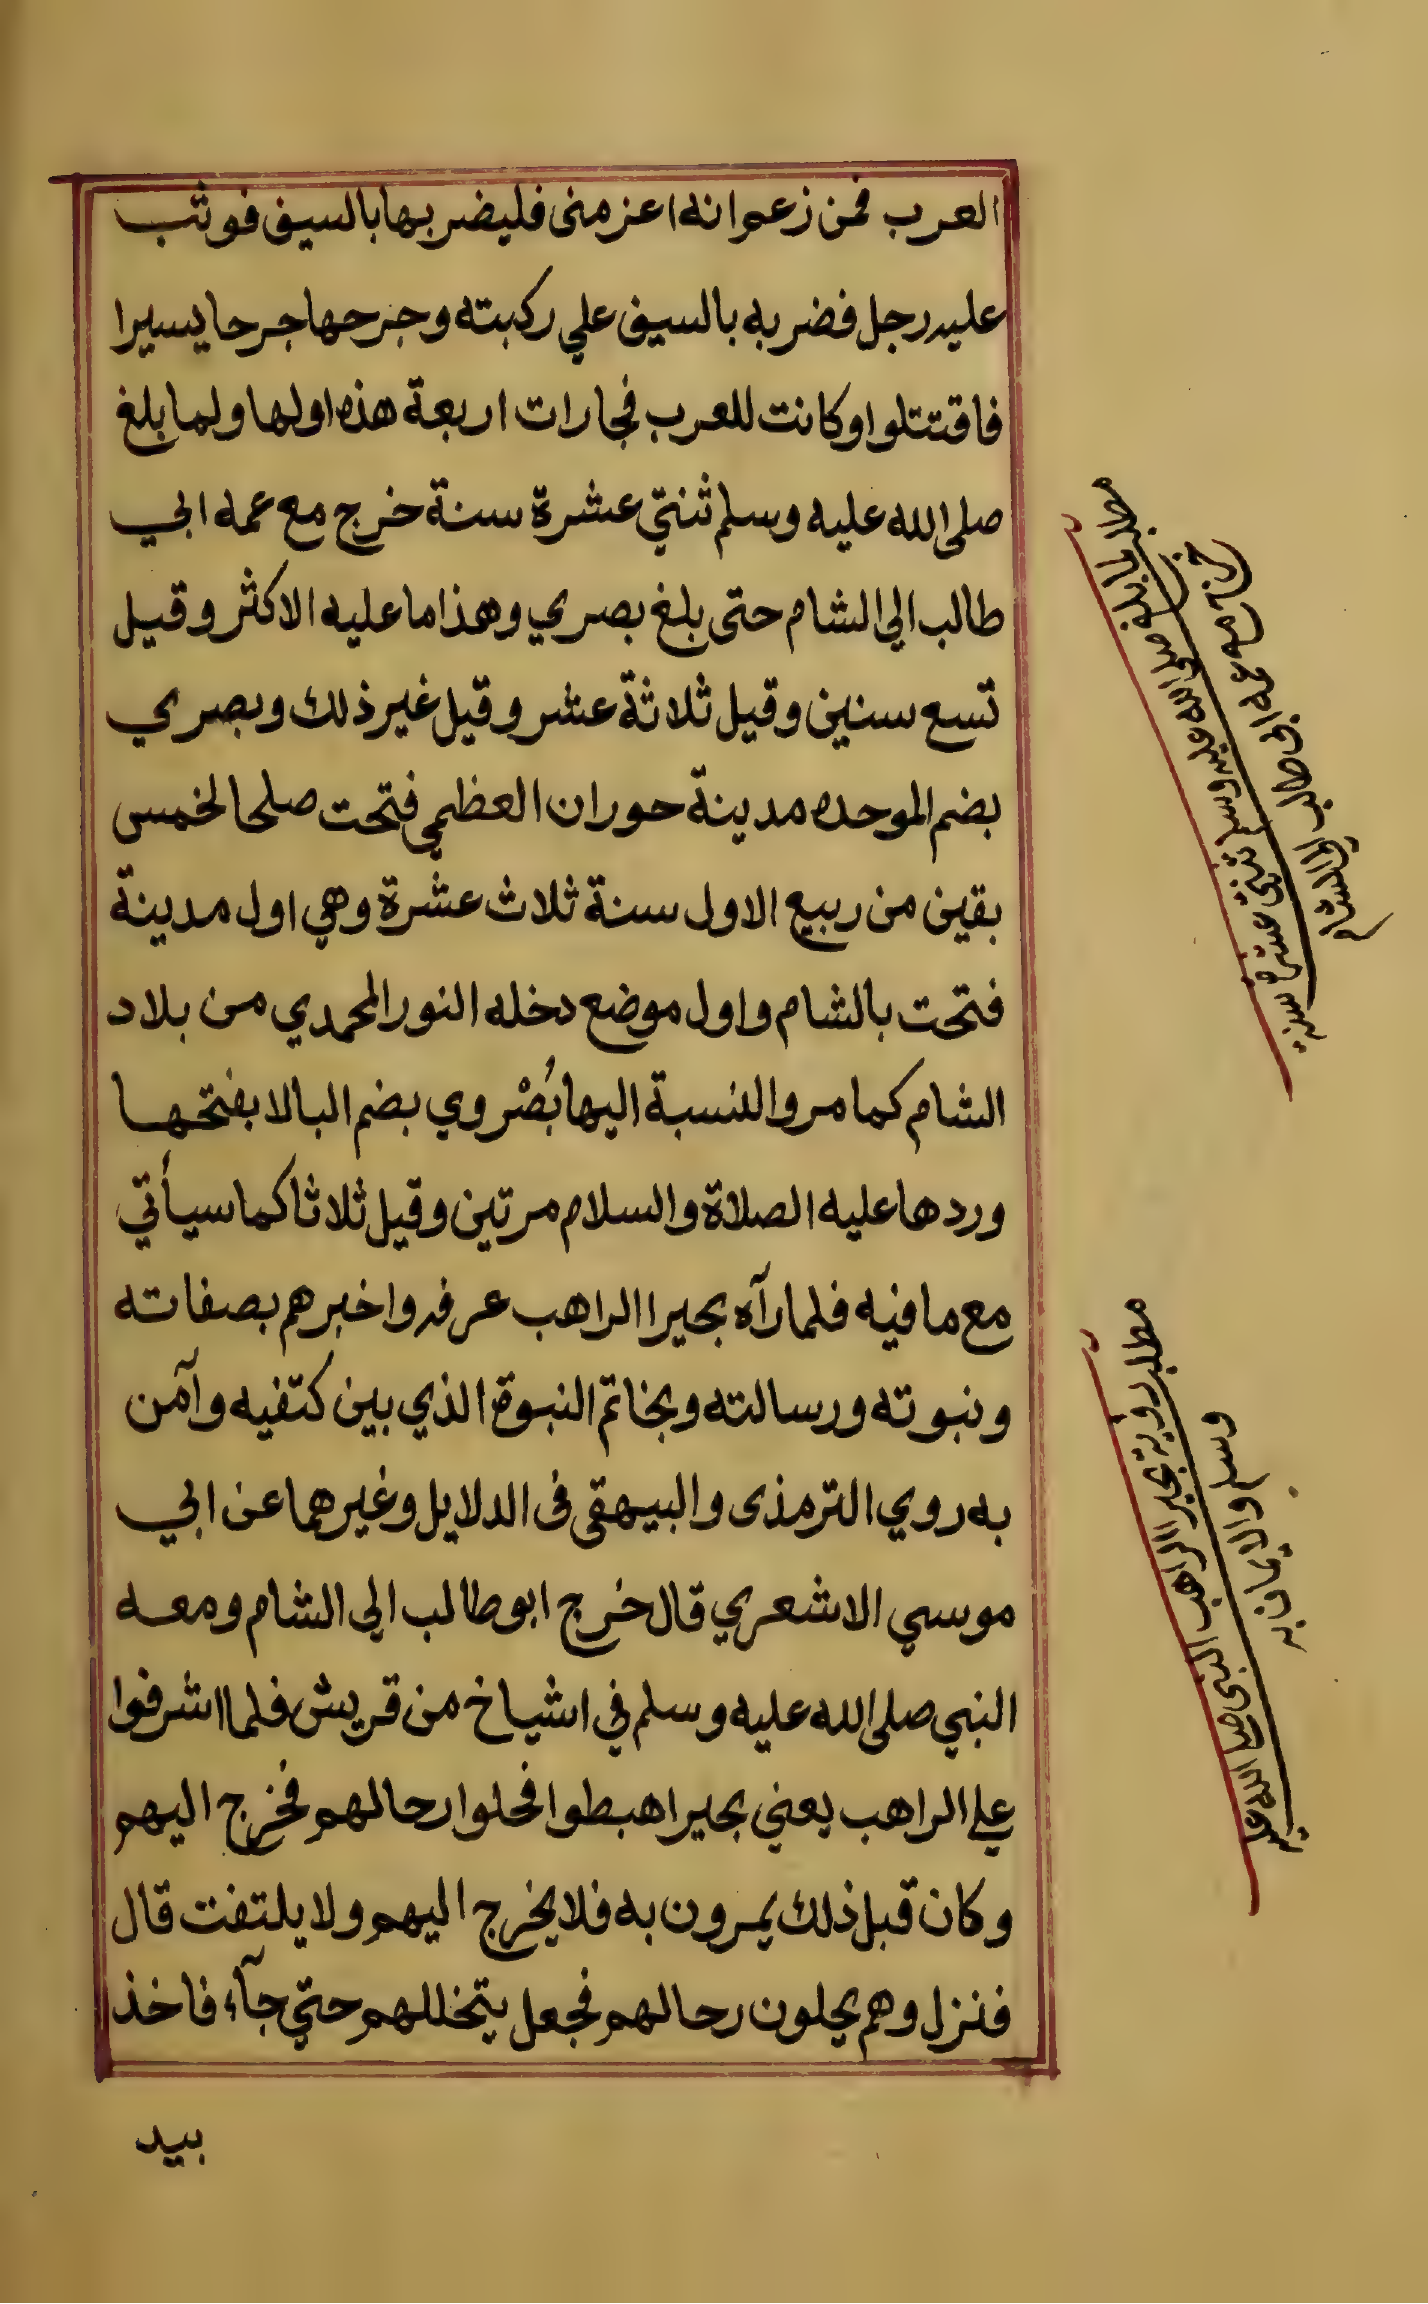 العرب فمن زعم انه اعز مني فليضربها بالسيف فوثب
عليه رجل فضربه بالسيف علي ركبته وجرحها جرحا يسيرا
فاقتتلوا وكانت للعرب فجارات اربعة هذه اولها ولما بلغ
صلى الله عليه وسلم ثنتي عشرة سنة خرج مع عمه ابي
طالب الي الشام حتى بلغ بصري وهذا ما عليه الاكثر وقيل
تسع سنين وقيل ثلاثة عشر وقيل غير ذلك وبصري
بضم الموحده مدينة حوران العظمي فتحت صلحا لخمس
بقين من ربيع الاول سنة ثلاث عشرة وهي اول مدينة
فتحت بالشام واول موضع دخله النور المحمدي من بلاد
الشام كما مر والنسبة اليها بُصْروي بضم البا لا بفتحها
وردها عليه الصلاة والسلام مرتين وقيل ثلاثا كما سيأتي
مع ما فيه فلما رآه بحيرا الراهب عرفه واخبرهم بصفاته
ونبوته ورسالته وبخاتم النبوة الذي بين كتفيه وآمن
به روي الترمذى والبيهقى فى الدلايل وغيرهما عن ابي
موسي الاشعري قال خرج ابو طالب الي الشام ومعه
النبي صلى الله عليه وسلم في اشياخ من قريش فلما اشرفوا
علي الراهب يعني بحيرا هبطوا فحلوا رحالهم فخرج اليهم
وكان قبل ذلك يمرون به فلا يخرج اليهم ولا يلتفت قال
فنزل وهم يحلون رحالهم فجعل يتخللهم حتي جآء فاخذ
بيد
مطلب لما بلغ صلى الله عليه وسلم ثنتى عشرة سنة
خرج مع عمه ابى طالب الي الشام
مطلب رؤية بحيرا الراهب النبى صلى الله عليه
وسلم والايمان به